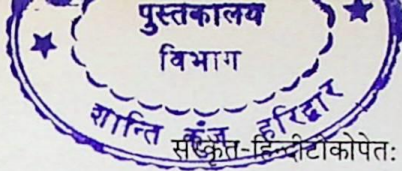 पुस्तकालय
विभाग
शान्ति कुंज हरिद्वार
संस्कृत-हिन्दीटीकोपेतः